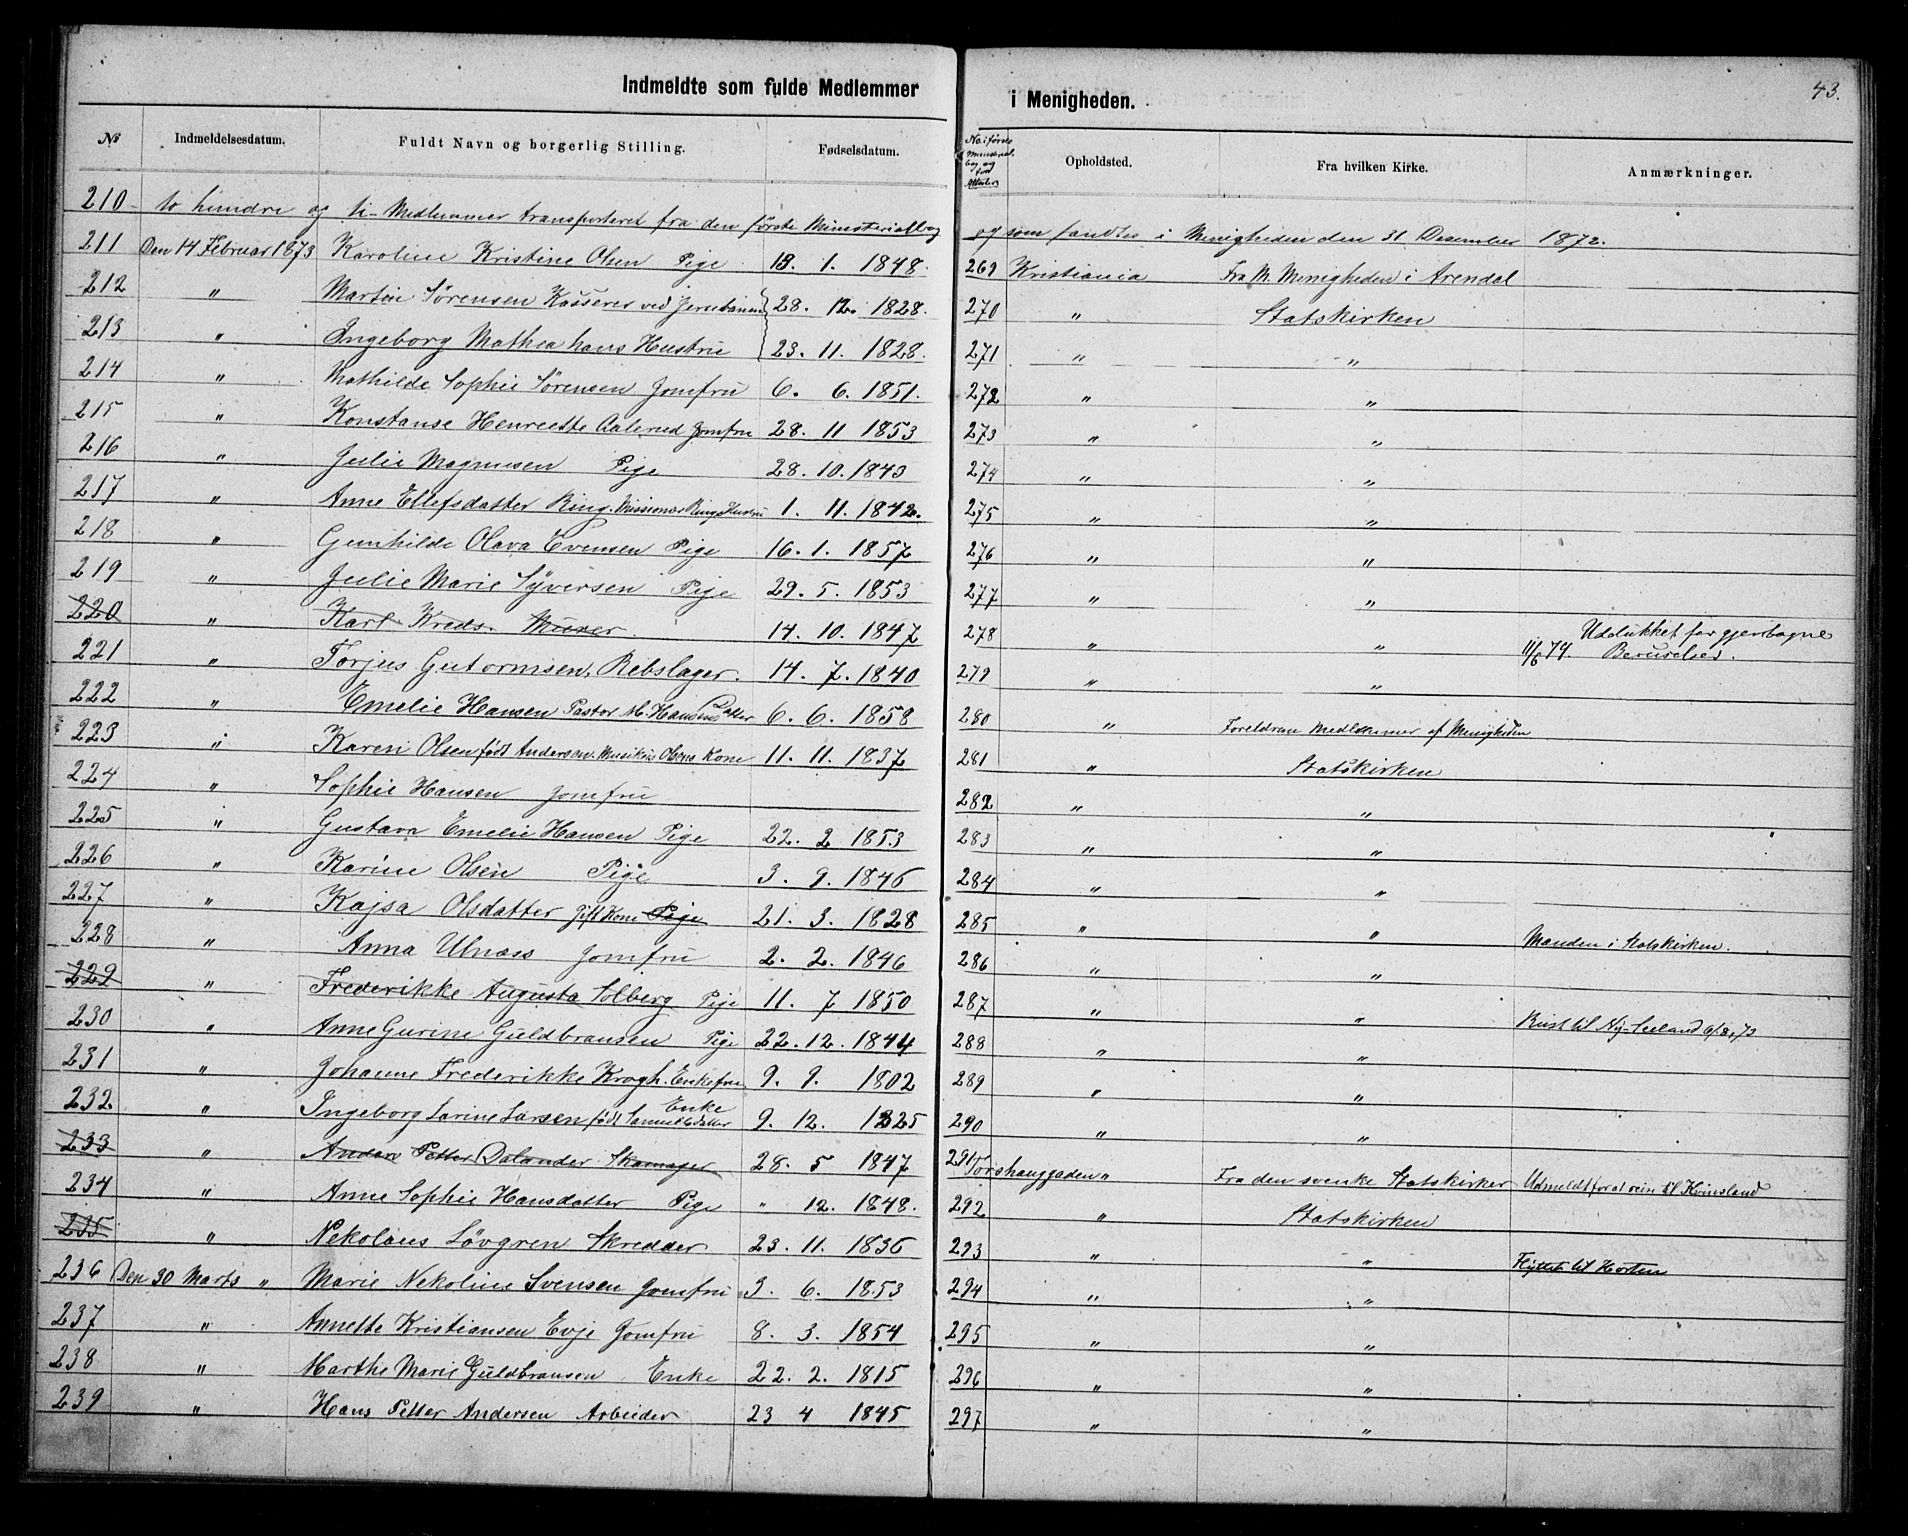 43.
Indmeldte som fulde Medlemmer i Menigheden.
№ Indmeldelsesdatum. Fuldt Navn og borgerlig Stilling. Fødselsdatum. Opholdsted. Fra hvilken Kirke. Anmærkninger.
210 to hundre og ti Medlemmer transporteret fra den første Ministerialbog og som fandtes i Menigheden den 31 Desember 1872.
211 Den 14 Februar 1873 Karoline Kristine Olsen Pige 13. 1. 1848. 269 Kristiania Fra M. Menigheden i Arendal
212 " Martin Sørensen Kasserer ved Jernbanen 28. 12. 1828. 270 " Statskirken
213 " Ingeborg Mathea hans Hustru 23. 11. 1828. 271 " "
214 " Mathilde Sophie Sørensen Jomfru 6. 6. 1851. 272 " "
215 " Konstanse Henreette Aalerud Jomfru 28. 11 1853 273 " "
216 " Julie Magnusen Pige 28. 10. 1843 274 " "
217 " Anne Ellefsdatter Ring. Missionær Rings Hustru 1. 11. 1842. 275 " "
218 " Gunhilde Olava Evensen Pige 16. 1. 1857 276 " "
219 " Julie Marie Syversen Pige 29. 5. 1853 277 " "
220 " Karl Kreds. Murer. 14. 10. 1847 278 " " 11/6 74. Udelukket for gjentagne Beruselser.
221 " Torjus Gutormsen, Rebslager. 14. 7. 1840 279 " "
222 " Emelie Hansen Pastor M. Hansens Datter 6. 6. 1858 280 " Foreldrene Medlemmer af Menigheden
223 " Karen Olsen født Andersen. Musikus Olsens Kone 11. 11. 1837 281 " Statskirken
224 " Sophie Hansen Jomfru 282 " "
225 " Gustava Emelie Hansen Pige 22. 2 1853 283 " "
226 " Karine Olsen Pige 3. 9. 1846 284 " "
227 " Kajsa Olsdatter Gift Kone Pige 21. 3. 1828 285 " " Manden i Statskirken.
228 " Anna Ulnæss Jomfru 2. 2. 1846 286 " "
229 " Frederikke Augusta Solberg Pige 11. 7 1850 287 " " Reist til Ny-Seeland 6/8, 73
230 " Anne Gurine Guldbransen Pige 22. 12. 1844 288 " "
231 " Johanne Frederikke Krogh. Enkefru 9. 9. 1802 289 " "
232 " Ingeborg Larine Larsen født Samuelsdatter Enke 9. 12. 1825 290 " "
233 " Petter Dalander Skomager 28. 5 1847 291 " Fra den svenke Statskirker
234 " Anne Sophie Hansdatter Pige " 12. 1848. 292 " Statskirken
235 " Nekolaus Løvgren Skredder 23. 11. 1836 293 " " Flyttet til Horten
236 Den 30 Marts " Marie Nekoline Svensen Jomfru 3. 6. 1853 294 " "
237 " Annette Kristiansen Evje Jomfru 8. 3. 1854 295 " "
238 " Marthe Marie Guldbransen Enke 22. 2. 1815 296 " "
239 " Hans Petter Andersen Arbeider 23 4 1845 297 " "